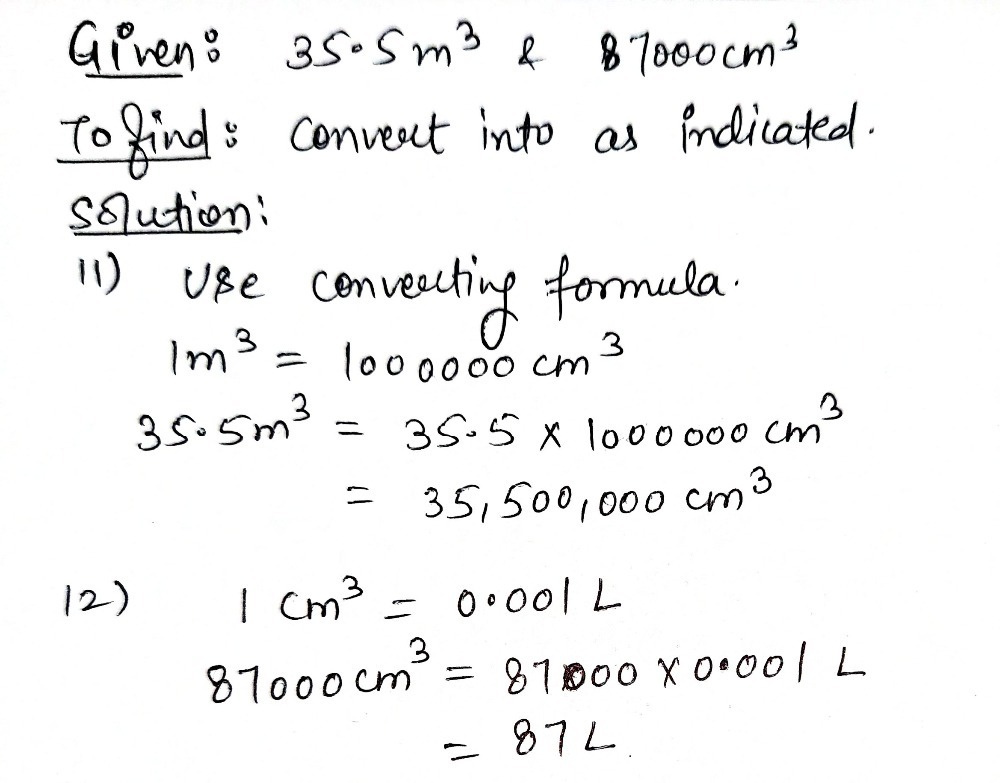 Given: 35.5m³ & 87000cm³
To find: convert into as indicated.
Solution:
11) Use converting formula.
1m³ = 1000000 cm³
35.5m³ = 35.5 x 1000000 cm³
= 35,500,000 cm³
12) 1 cm³ = 0.001 L
87000cm³ = 87000 x 0.001 L
= 87 L